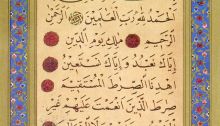 الحمد لله رب العلمين الرحمن
الرحيم ملك يوم الدين
إياك نعبد وإياك نستعين
اهدنا الصرط المستقيم
صرط الذين أنعمت عليهم غير